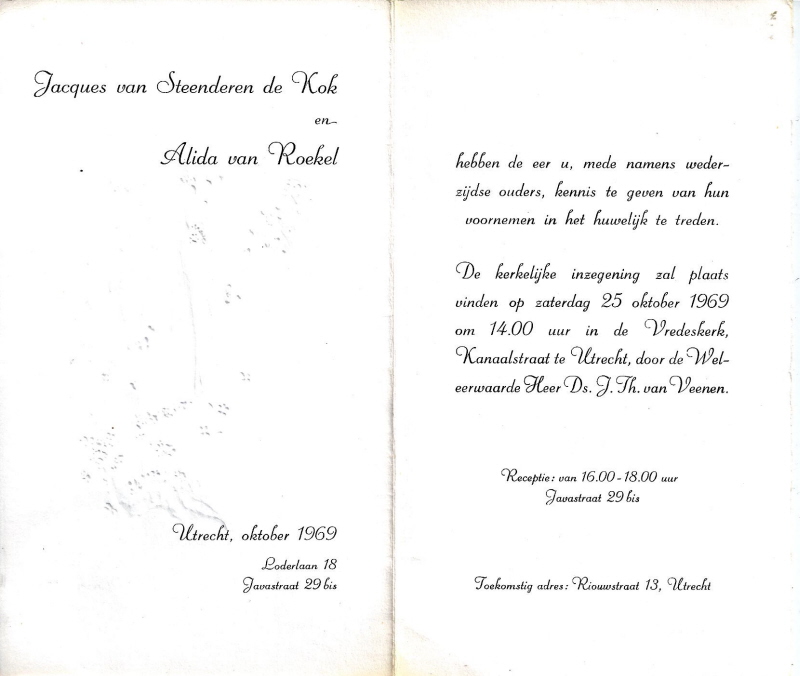 Jacques van Steenderen de Kok
en
Alida van Roekel
Utrecht, oktober 1969
Loderlaan 18
Javastraat 29 bis
hebben de eer u, mede namens weder-
zijdse ouders, kennis te geven van hun
voornemen in het huwelijk te treden.
De kerkelijke inzegening zal plaats
vinden op zaterdag 25 oktober 1969
om 14.00 uur in de Vredeskerk,
Kanaalstraat te Utrecht, door de Wel-
eerwaarde Heer Ds. J. Th. van Veenen.
Receptie: van 16.00-18.00 uur
Javastraat 29 bis
Toekomstig adres: Riouwstraat 13, Utrecht